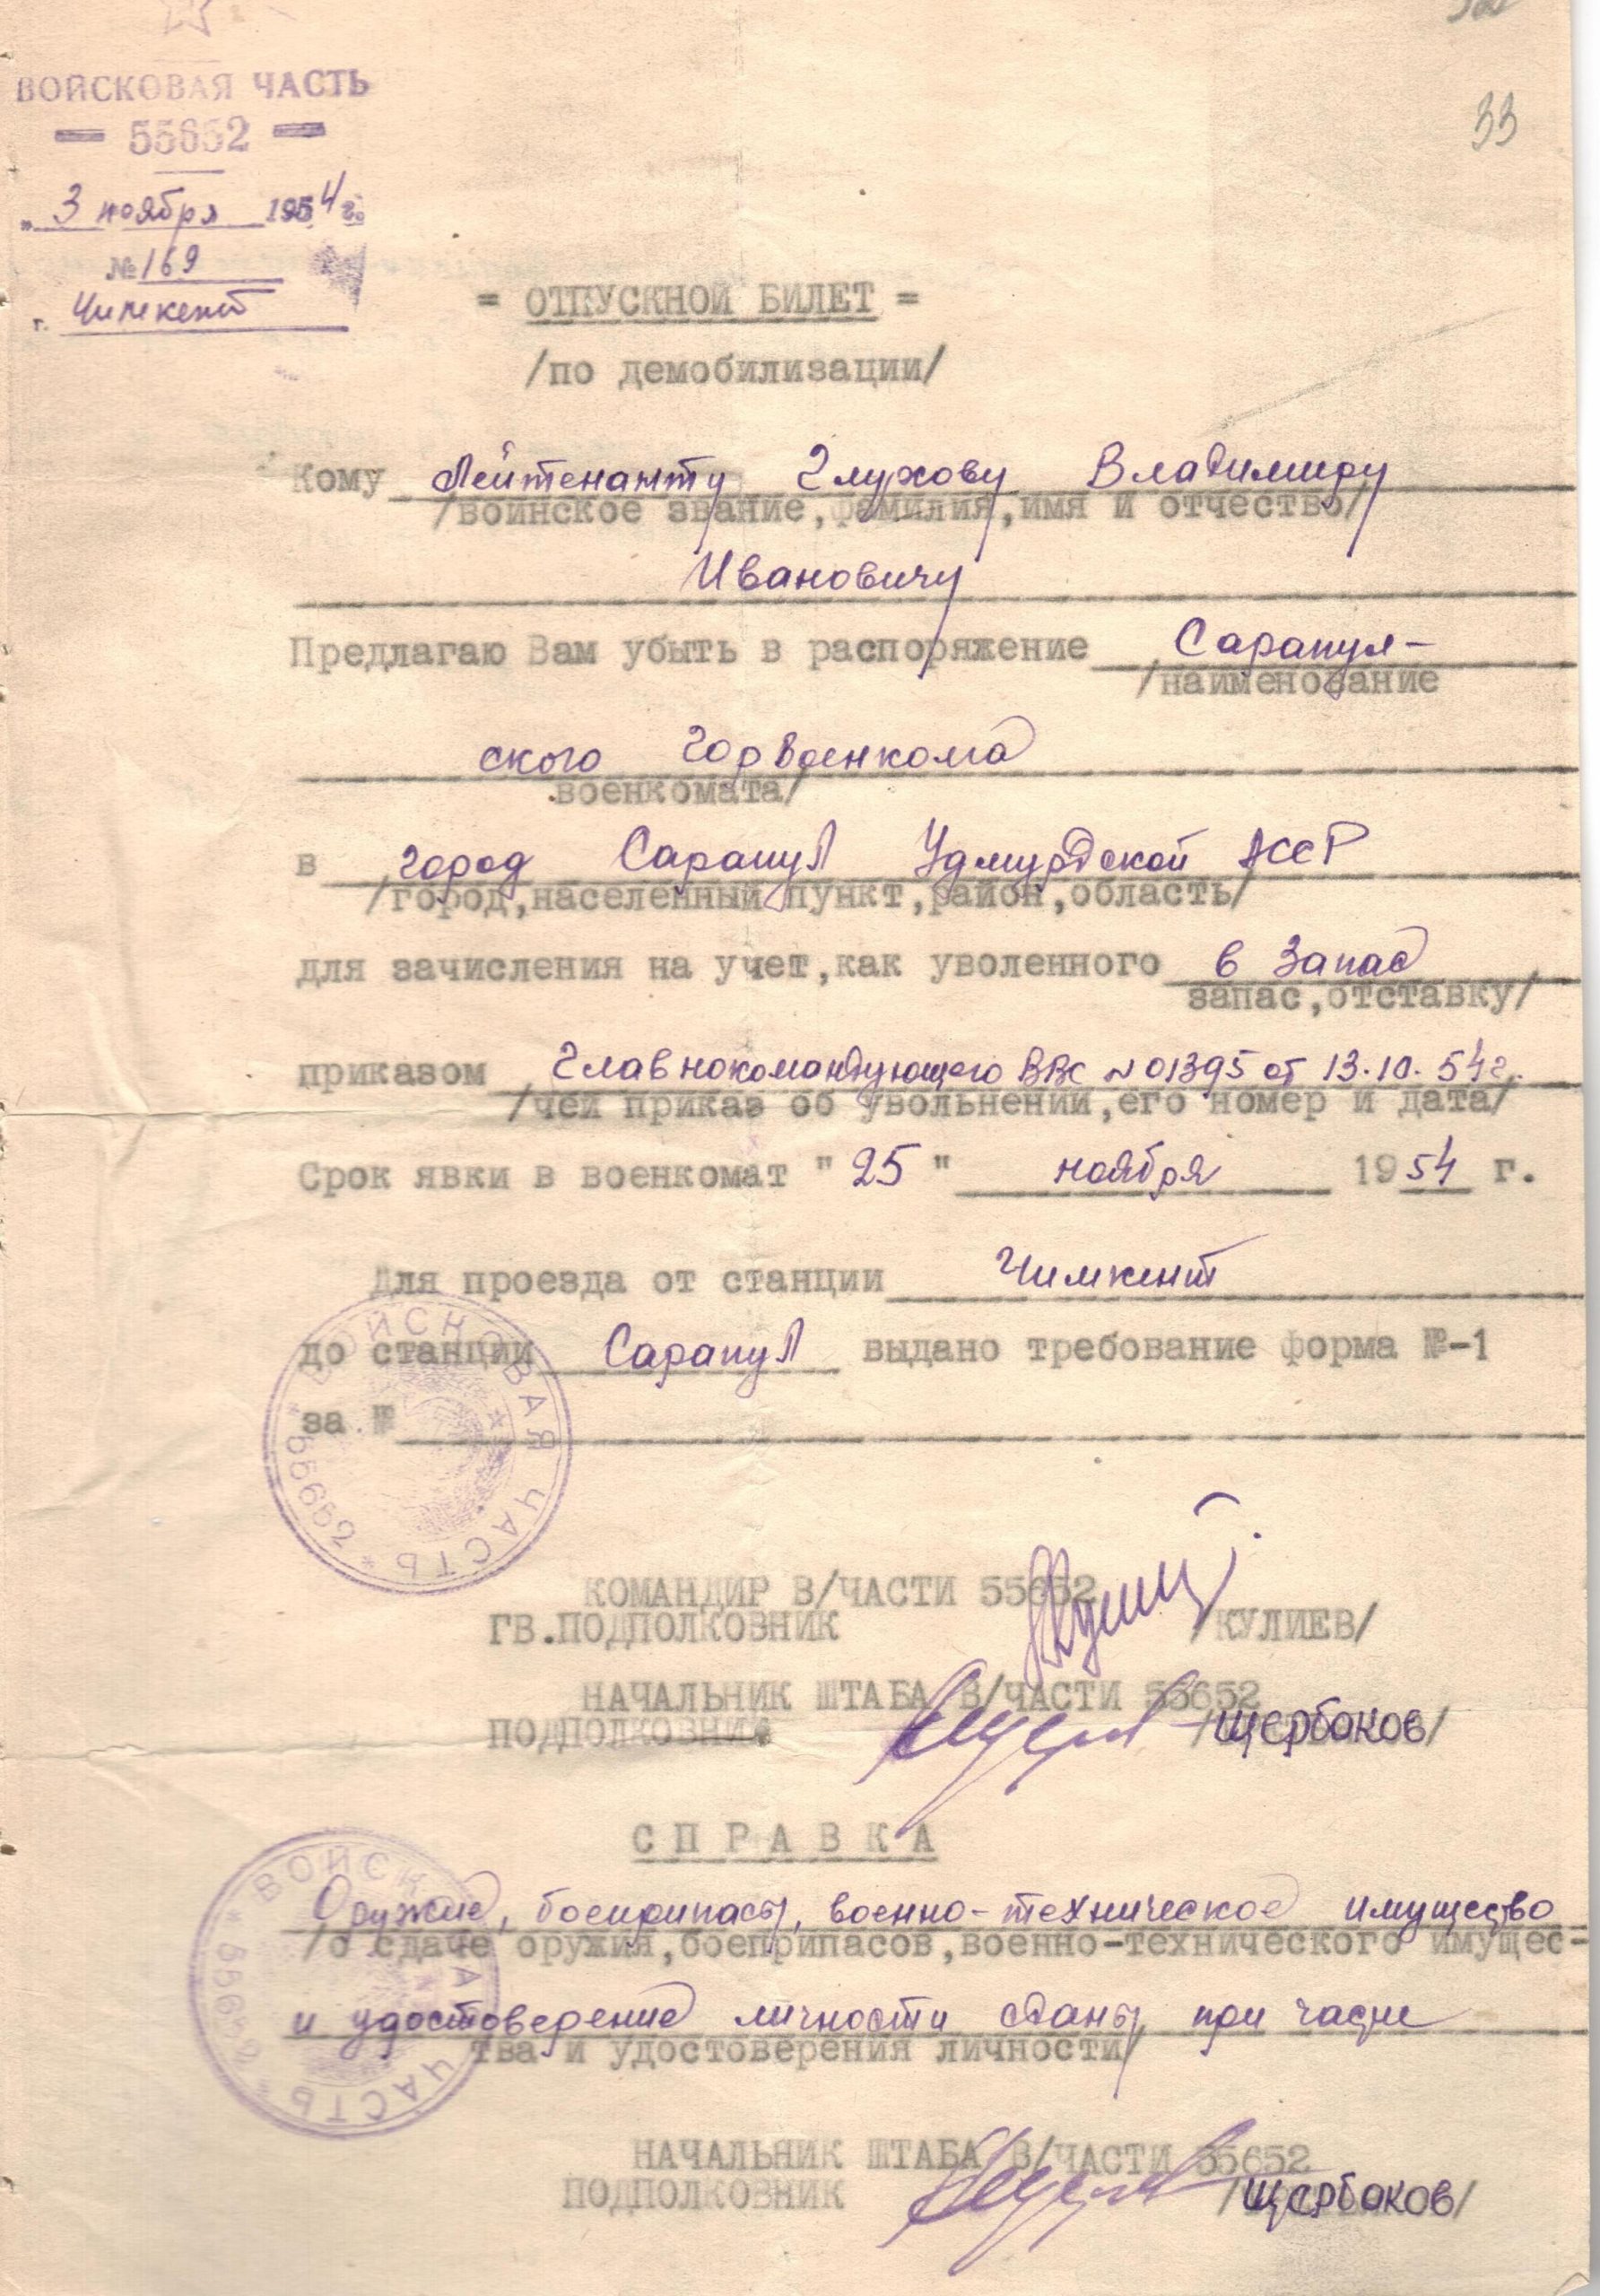 ВОЙСКОВАЯ ЧАСТЬ
55652
33
„3 ноября 1954 г.
№ 169
г. Чимкент
= ОТПУСКНОЙ БИЛЕТ =
/по демобилизации/
Кому Лейтенанту Глухову Владимиру
/воинское звание,фамилия,имя и отчество/
Ивановичу
Предлагаю Вам убыть в распоряжение Сарапуль-
/наименование
ского Горвоенкома
военкомата/
в город Сарапул Удмуртской АССР
/город,населенный пункт,район,область/
для зачисления на учет,как уволенного в запас
запас,отставку/
приказом Главнокомандующего ВВС № 01395 от 13.10.54г.
/чей приказ об увольнении,его номер и дата/
Срок явки в военкомат "25" ноября 1954 г.
Для проезда от станции Чимкент
до станции Сарапул выдано требование форма №-1
за №
* ВОЙСКОВАЯ ЧАСТЬ * 55652
КОМАНДИР В/ЧАСТИ 55652
ГВ.ПОДПОЛКОВНИК /КУЛИЕВ/
НАЧАЛЬНИК ШТАБА В/ЧАСТИ 55652
ПОДПОЛКОВНИК /Щербаков/
СПРАВКА
Оружие, боеприпасы, военно-техническое имущество
/о сдаче оружия,боеприпасов,военно-технического имущес-
и удостоверение личности сданы при части
тва и удостоверения личности/
* ВОЙСКОВАЯ ЧАСТЬ * 55652
НАЧАЛЬНИК ШТАБА В/ЧАСТИ 55652
ПОДПОЛКОВНИК /Щербаков/